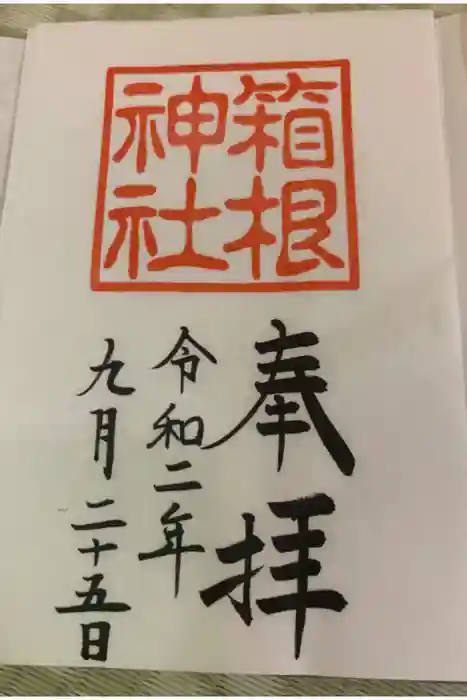 箱根
神社
奉拝
令和二年
九月二十五日